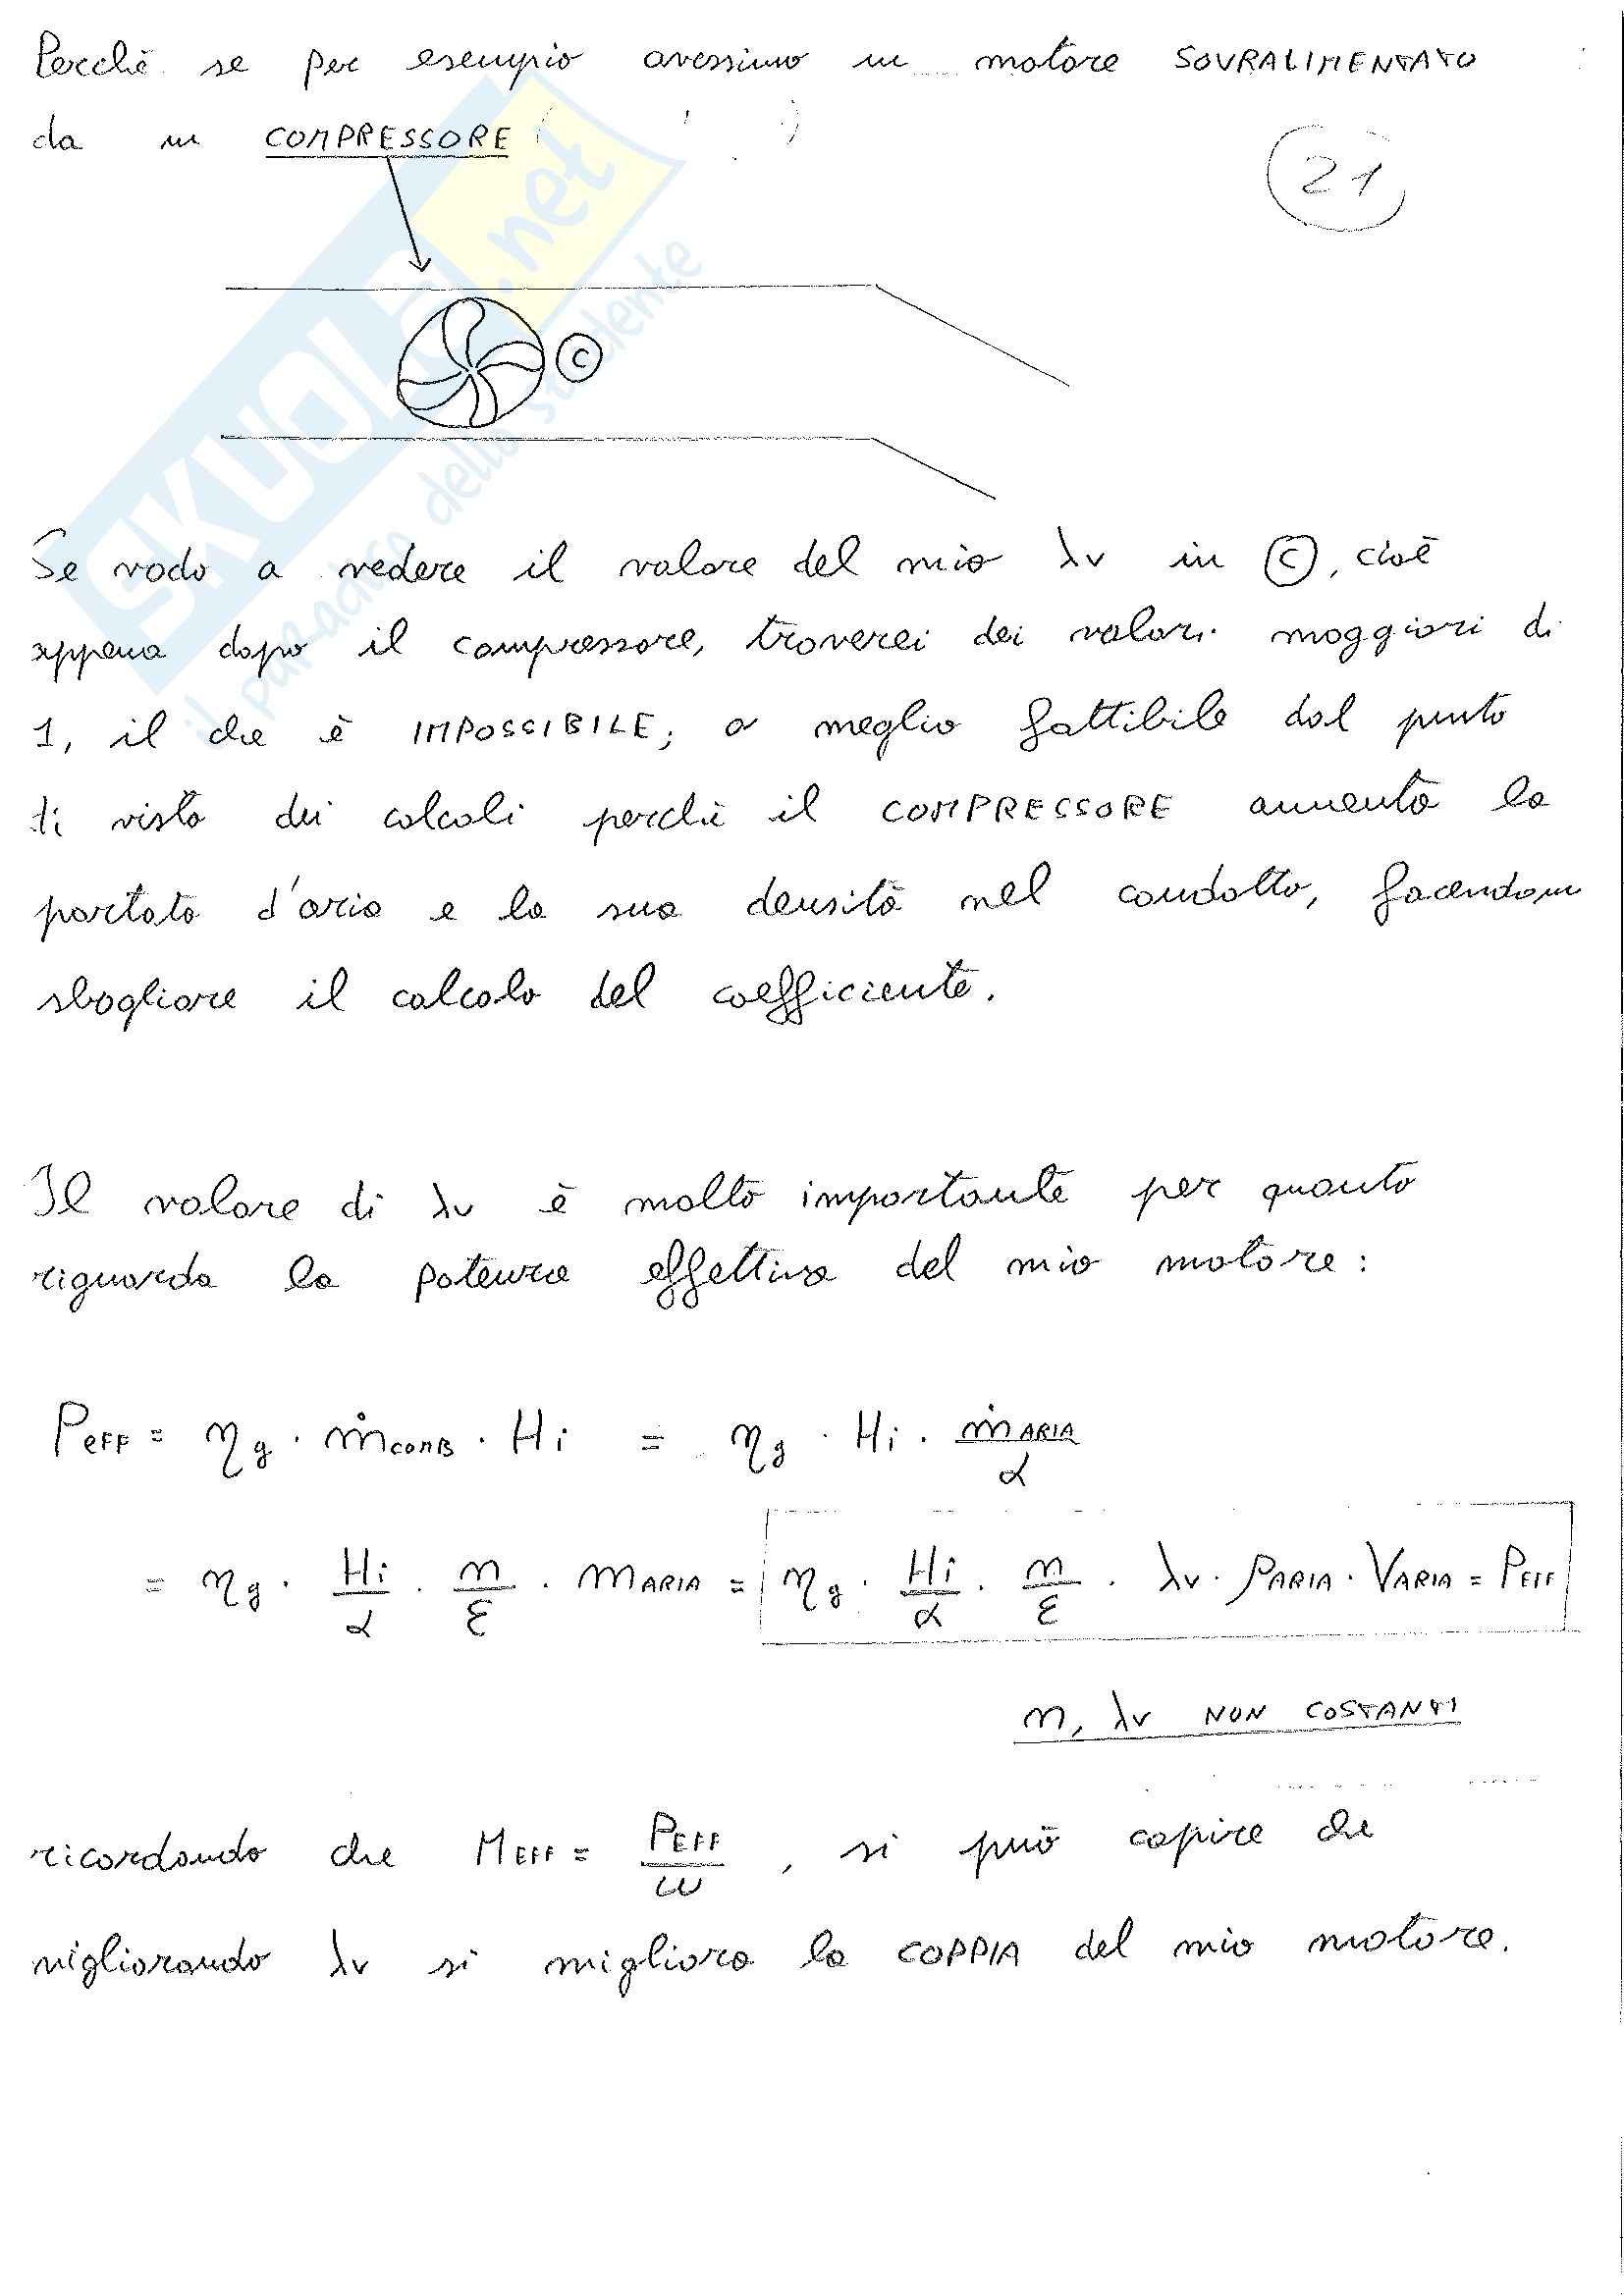 Perchè se per esempio avessimo un motore SOVRALIMENTATO
da un COMPRESSORE
21
C
Se vado a vedere il valore del mio λv in C, cioè
appena dopo il compressore, troverei dei valori maggiori di
1, il che è IMPOSSIBILE; o meglio fattibile dal punto
di vista dei calcoli perchè il COMPRESSORE aumenta la
portata d'aria e la sua densità nel condotto, facendomi
sbagliare il calcolo del coefficiente.
Il valore di λv è molto importante per quanto
riguarda la potenza effettiva del mio motore:
PEFF = ηg · ṁCOMB · Hi = ηg · Hi · ṁARIA/α
= ηg · Hi/α · n/ε · mARIA = ηg · Hi/α · n/ε · λv · ρARIA · VARIA = PEFF
n, λv NON COSTANTI
ricordando che MEFF = PEFF/ω, si può capire che
migliorando λv si migliora la COPPIA del mio motore.
SKUOLA.net
il paradiso dello studente